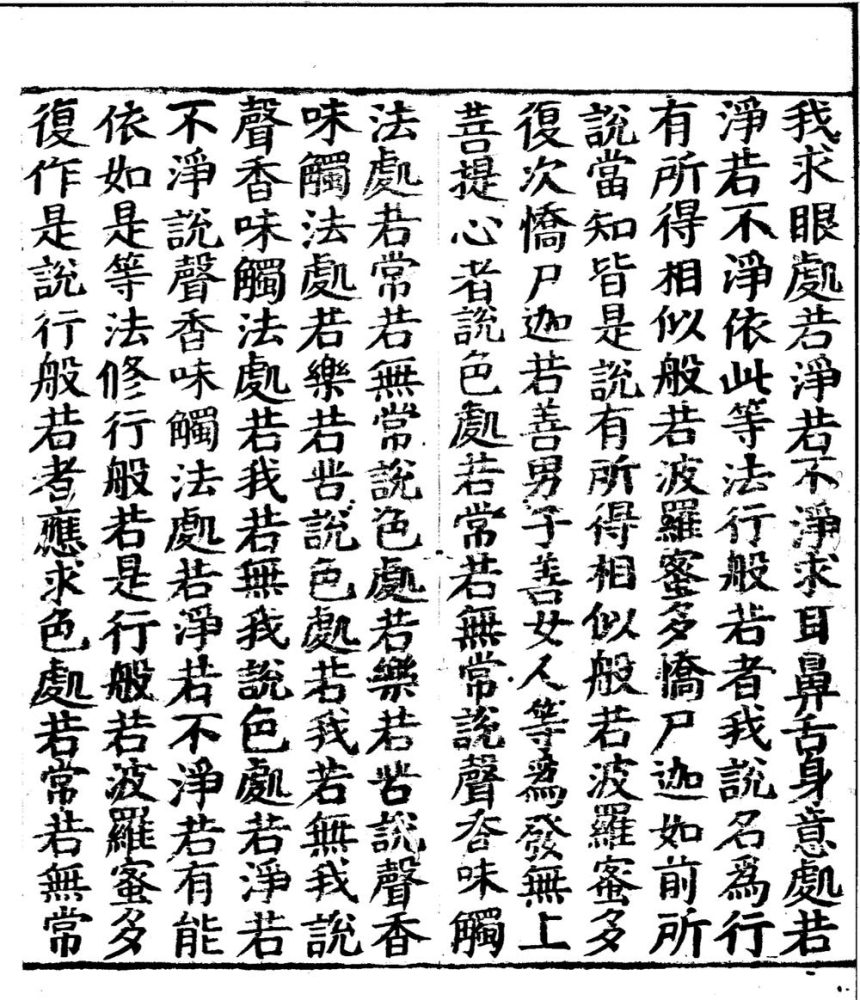 我求眼處若淨若不淨求耳鼻舌身意處若
淨若不淨依此等法行般若者我說名爲行
有所得相似般若波羅蜜多憍尸迦如前所
說當知皆是說有所得相似般若波羅蜜多
復次憍尸迦若善男子善女人等爲發無上
菩提心者說色處若常若無常說聲香味觸
法處若常若無常說色處若樂若苦說聲香
味觸法處若樂若苦說色處若我若無我說
聲香味觸法處若我若無我說色處若淨若
不淨說聲香味觸法處若淨若不淨若有能
依如是等法修行般若是行般若波羅蜜多
復作是說行般若者應求色處若常若無常